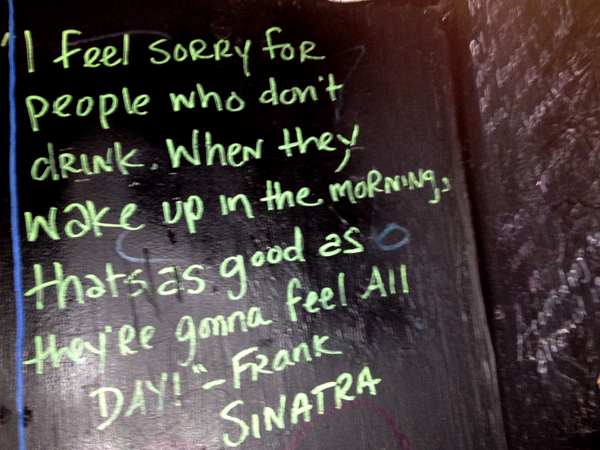 "I feel SORRY foR
people who don't
dRINK. When they
wake up in the moRNiNg,
thats as good as
they're gonna feel All
DAY!" - Frank
SINATRA